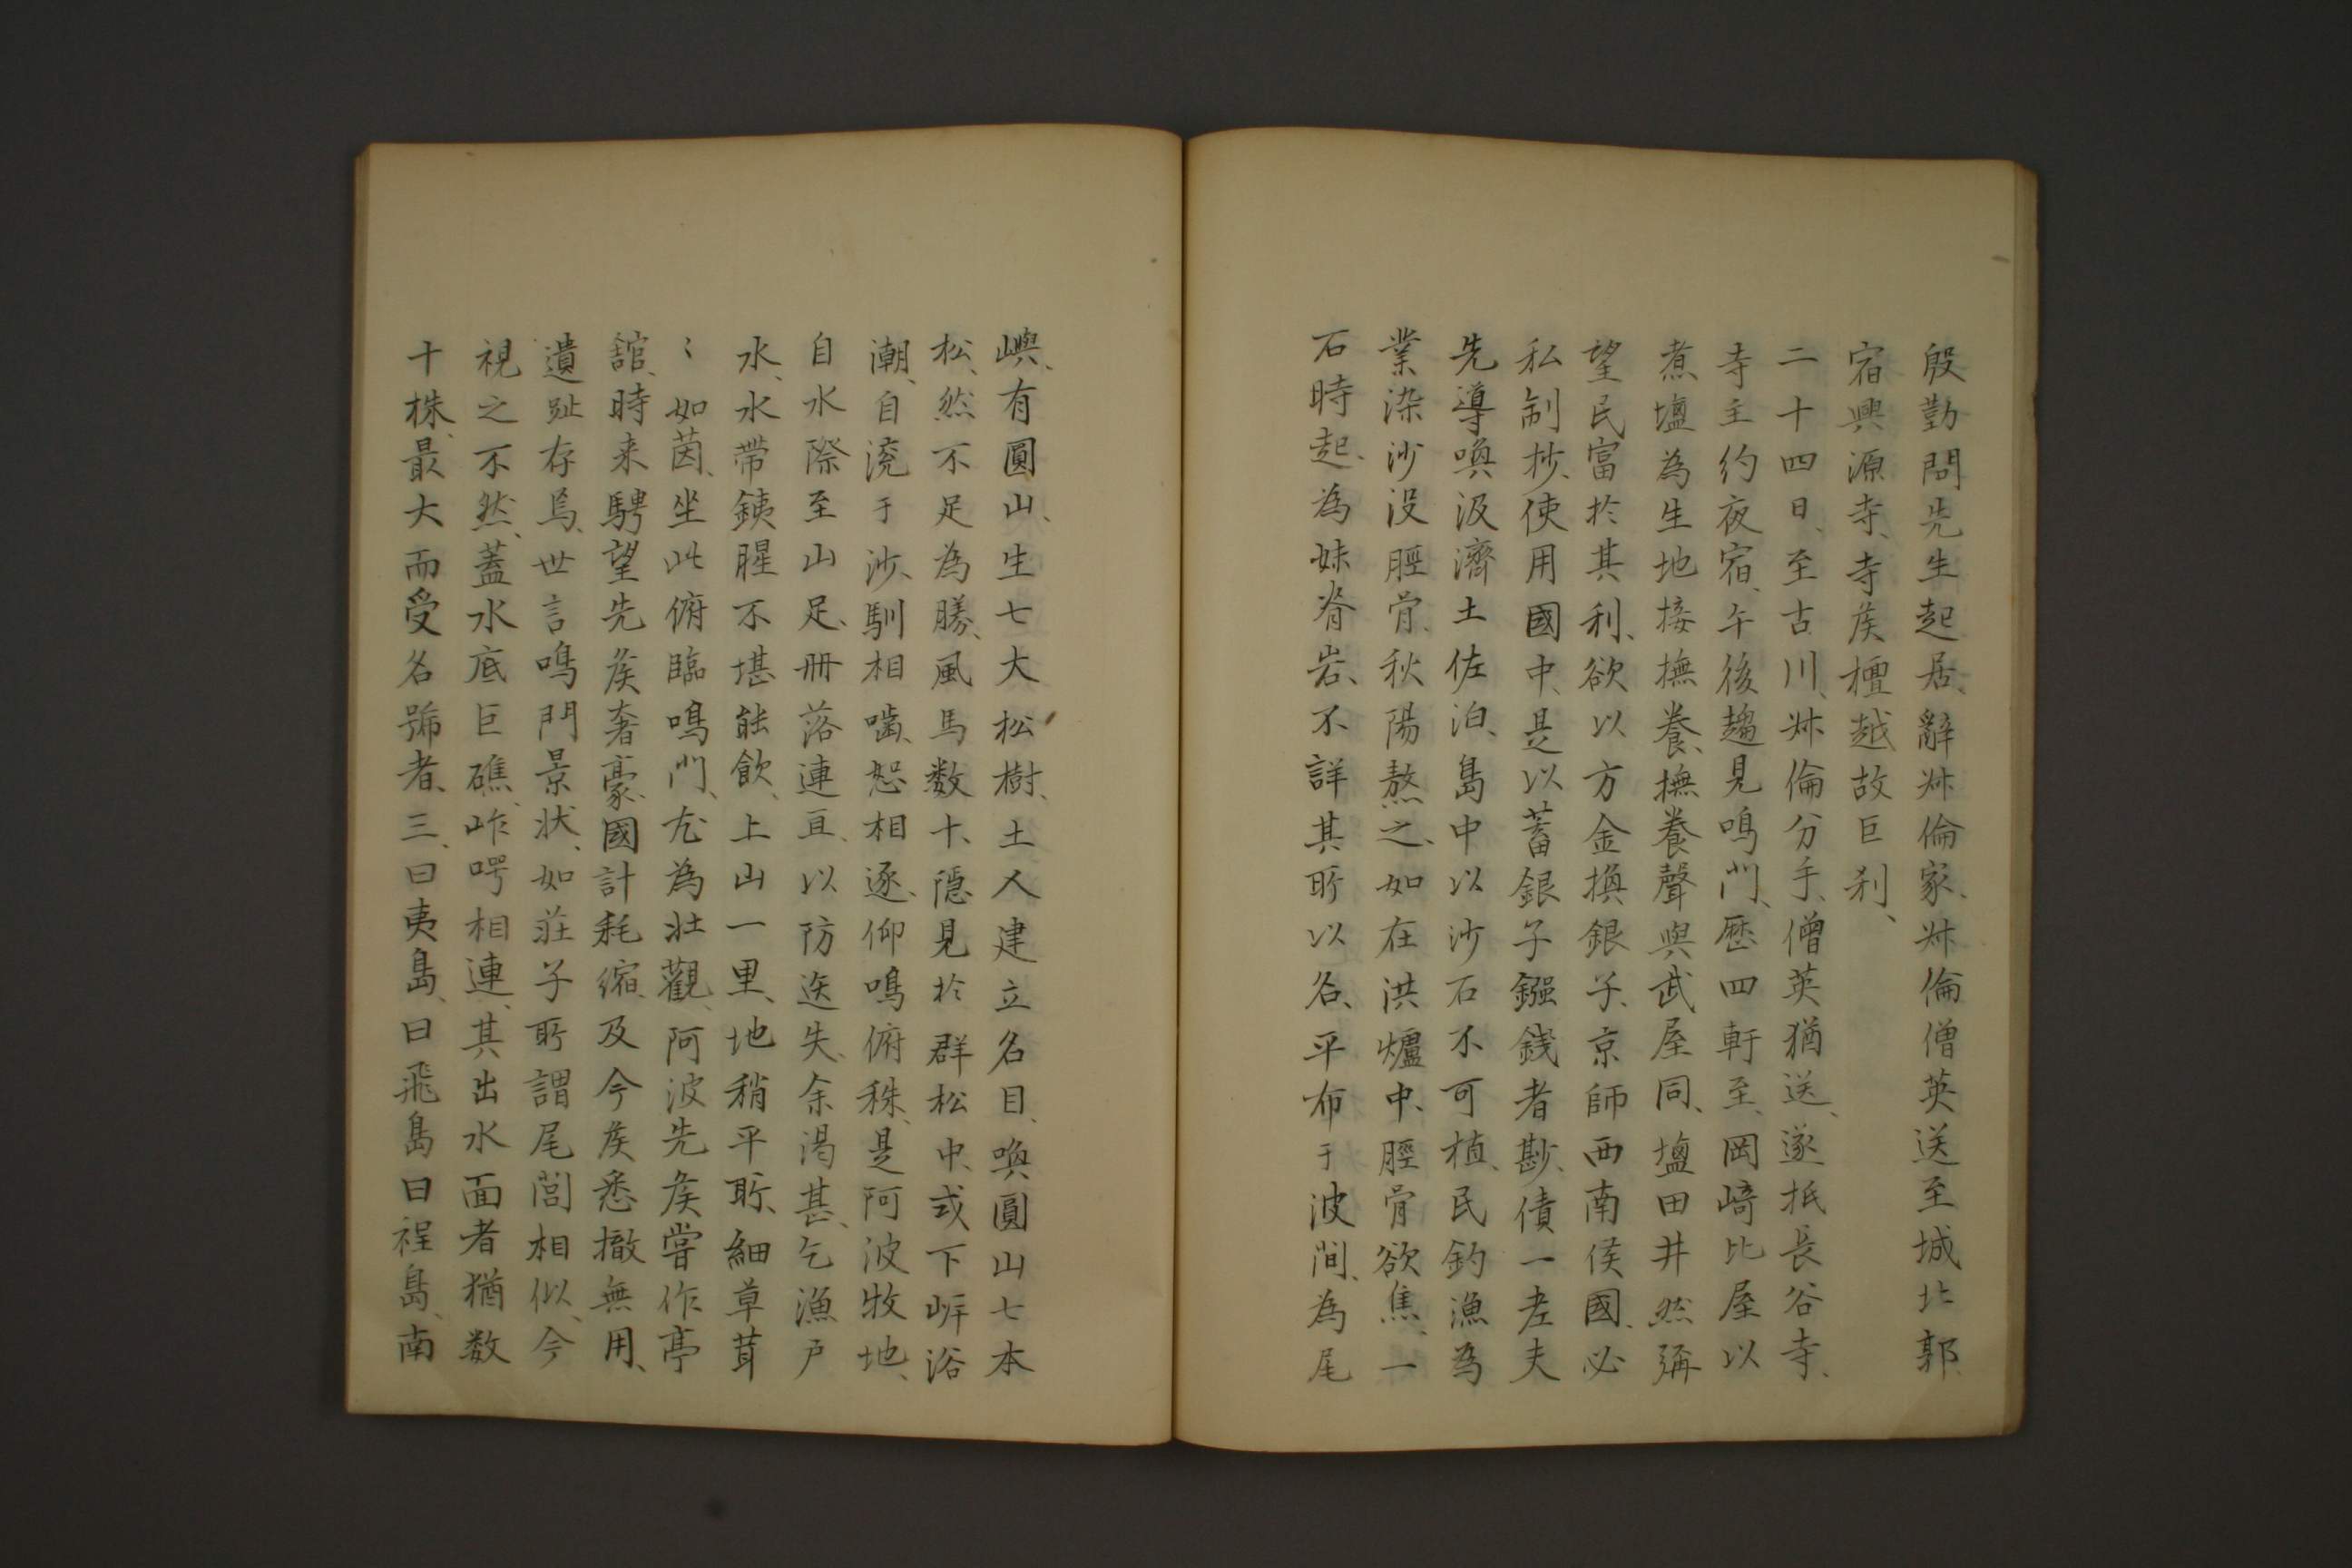 殷勤問先生起居、辞𠦑倫家、𠦑倫僧英送至城北郭、
宿興源寺、寺矦檀越故巨刹、
二十四日、至古川、𠦑倫分手、僧英猶送、遂抵長谷寺、
寺主約夜宿、午後趨見鳴門、歴四軒至、岡﨑比屋以
煮塩為生地接撫養、撫養聲與武屋同、塩田井然弥
望民富於其利、欲以方金換銀子、京師西南侯國、必
私制抄、使用國中、是以蓄銀子鏹銭者尠、債一老夫
先導喚汲濟土佐泊、島中以沙石不可植、民釣漁為
業染沙没脛骨、秋陽熬之、如在洪爐中、脛骨欲焦、一
石時起、為妹脊岩、不詳其所以名、平布于波間、為尾
嶼、有圓山、生七大松樹、土人建立名目、喚圓山七本
松、然不足為勝、風馬数十、隠見於群松中、或下岸浴
潮、自滾于沙、馴相噛、怒相逐、仰鳴俯秣、是阿波牧地、
自水際至山足、冊落連亘、以防迭失、余渇甚、乞漁戸
水、水帯銕腥不堪能飲、上山一里、地稍平所、細草茸
〻如茵、坐此俯臨鳴門、尤為壮觀、阿波先矦嘗作亭
舘、時来騁望先矦奢豪、國計耗縮、及今矦悉撤無用、
遺趾存焉、世言鳴門景状、如莊子所謂尾閭相似、今
視之不然、蓋水底巨礁、岞㟧相連、其出水面者猶数
十株、最大而受名號者、三、曰夷島、曰飛島曰裎島、南